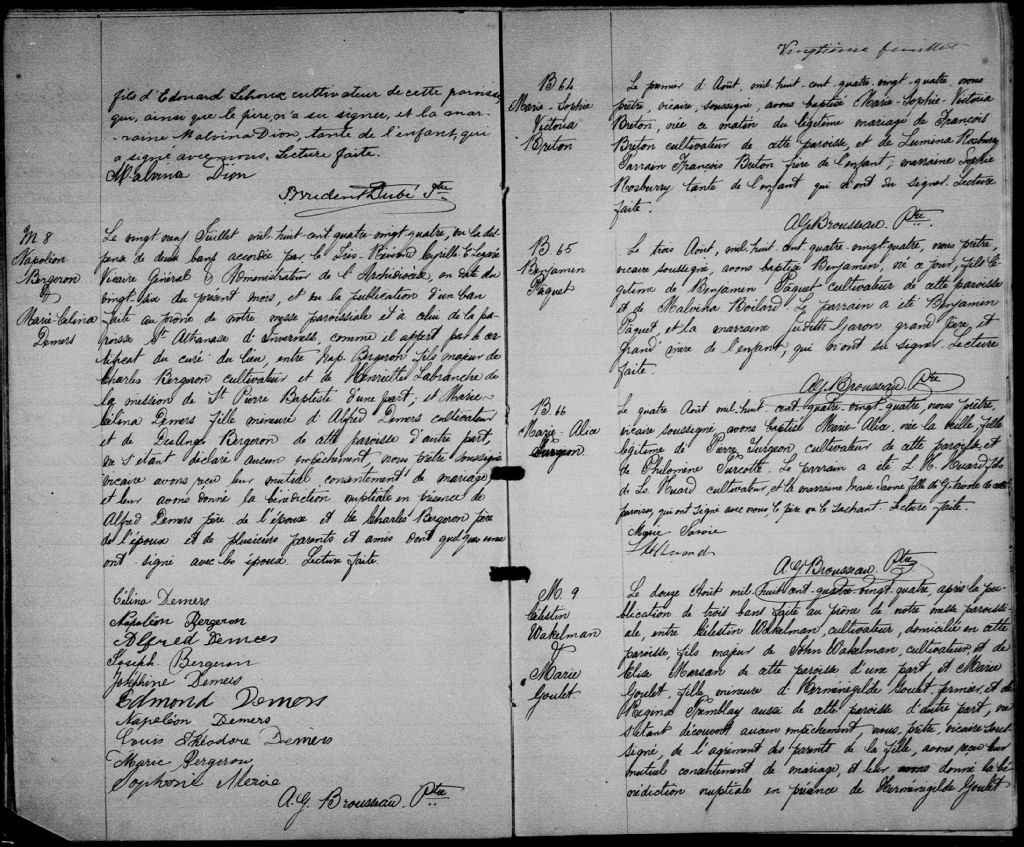 fils d'Edouard Lehoux cultivateur de cette paroisse
qui, ainsi que le père, n'a su signer, et la mar-
raine Malvina Dion, tante de l'enfant, qui
a signé avec nous. Lecture faite.
Malvina Dion
Prudent Dubé Ptre
M 8
Napoléon
Bergeron
&
Marie-Célina
Demers
Le vingt neuf Juillet mil-huit-cent quatre-vingt-quatre, vu la dis-
pense de deux bans accordée par le Très-Révérend Cyrille E Legaré
Vicaire Général & Administrateur de l'Archidiocèse, en date du
vingt six du présent mois, et vu la publication d'un ban
faite au prône de notre messe paroissiale et à celui de la pa-
roisse St Athanase d'Inverness, comme il appert par le cer-
tificat du curé du lieu, entre Nap. Bergeron fils majeur de
Charles Bergeron cultivateur et de Henriette Labranche de
la mission de St Pierre Baptiste d'une part; et Marie-
Célina Demers fille mineure d'Alfred Demers cultivateur
et de Bergeron de cette paroisse d'autre part,
ne s'étant déclaré aucun empêchement nous prêtre soussigné
vicaire avons reçu leur mutuel consentement de mariage
et leur avons donné la bénédiction nuptiale en présence de
Alfred Demers père de l'épouse et de Charles Bergeron père
de l'époux et de plusieurs parents et amis dont quelques uns
ont signé avec les époux. Lecture faite.
Célina Demers
Napoléon Bergeron
Alfred Demers
Joseph Bergeron
Joséphine Demers
Edmond Demers
Napoléon Demers
Louis Théodore Demers
Marie Bergeron
A. G. Brousseau Ptre
Vingtième feuillet
B 64
Marie-Sophie
Victoria
Breton
Le premier d'Août, mil-huit-cent quatre-vingt-quatre nous
prêtre, vicaire, soussigné, avons baptisé Marie-Sophie-Victoria
Breton, née ce matin du légitime mariage de François
Breton cultivateur de cette paroisse, et de Lumina Rosburry
Parrain François Breton frère de l'enfant; marraine Sophie
Rosburry tante de l'enfant qui n'ont su signer. Lecture
faite.
A G Brousseau Ptre
B 65
Benjamin
Paquet
Le trois Août, mil-huit-cent quatre-vingt quatre, nous prêtre,
vicaire soussigné, avons baptisé Benjamin, né ce jour, fils lé-
gitime de Benjamin Paquet cultivateur de cette paroisse
et de Malvina Boilard. Le parrain a été Benjamin
Paquet, et la marraine Judith Garon grand'père et
grand'mère de l'enfant, qui n'ont su signer. Lecture
faite.
A G Brousseau Ptre
B 66
Marie-Alice
Turgeon
Le quatre Août mil-huit-cent-quatre-vingt-quatre, nous prêtre,
vicaire soussigné, avons baptisé Marie-Alice, née la veille, fille
légitime de Pierre Turgeon cultivateur de cette paroisse et
de Philomène Turcotte. Le parrain a été L. N. Huard fils
de Ls. Huard cultivateur, et la marraine Marie Savoie fille de de cette
paroisse, qui ont signé avec nous, le père ne le sachant. Lecture faite.
Marie Savoie
A G Brousseau Ptre
M. 9
Célestin
Wakelman
&
Marie
Goulet
Le douze Août mil-huit-cent-quatre-vingt-quatre, après la pu-
blication de trois bans faite au prône de notre messe paroissi-
ale, entre Célestin Wakelman, cultivateur, domicilié en cette
paroisse, fils majeur de John Wakelman, cultivateur, et de
Eliza Marsan de cette paroisse d'une part et Marie
Goulet, fille mineure d'Herménégilde Goulet, fermier, et de
Régina Tremblay aussi de cette paroisse d'autre part, ne
s'étant découvert aucun empêchement, nous, prêtre, vicaire sous-
signé, de l'agrément des parents de la fille, avons reçu leur
mutuel consentement de mariage, et leur avons donné la bé-
nédiction nuptiale en présence de Herménégilde Goulet